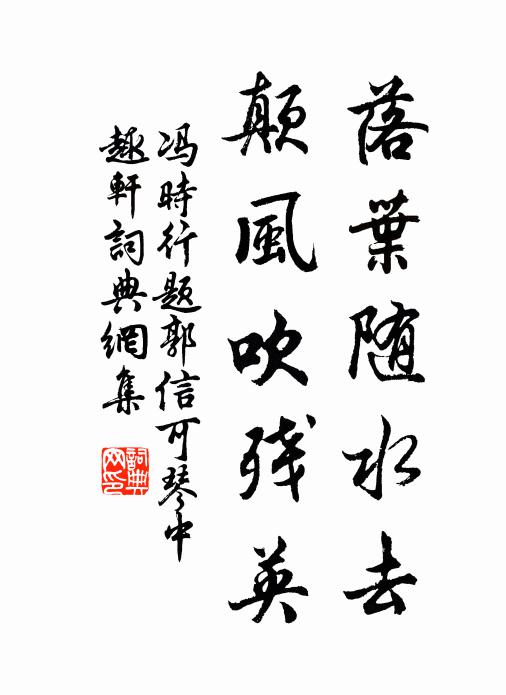 落葉随水去
顛風吹残英
冯時行题郭信可琴中
趣軒詞典網集
詞典
网印